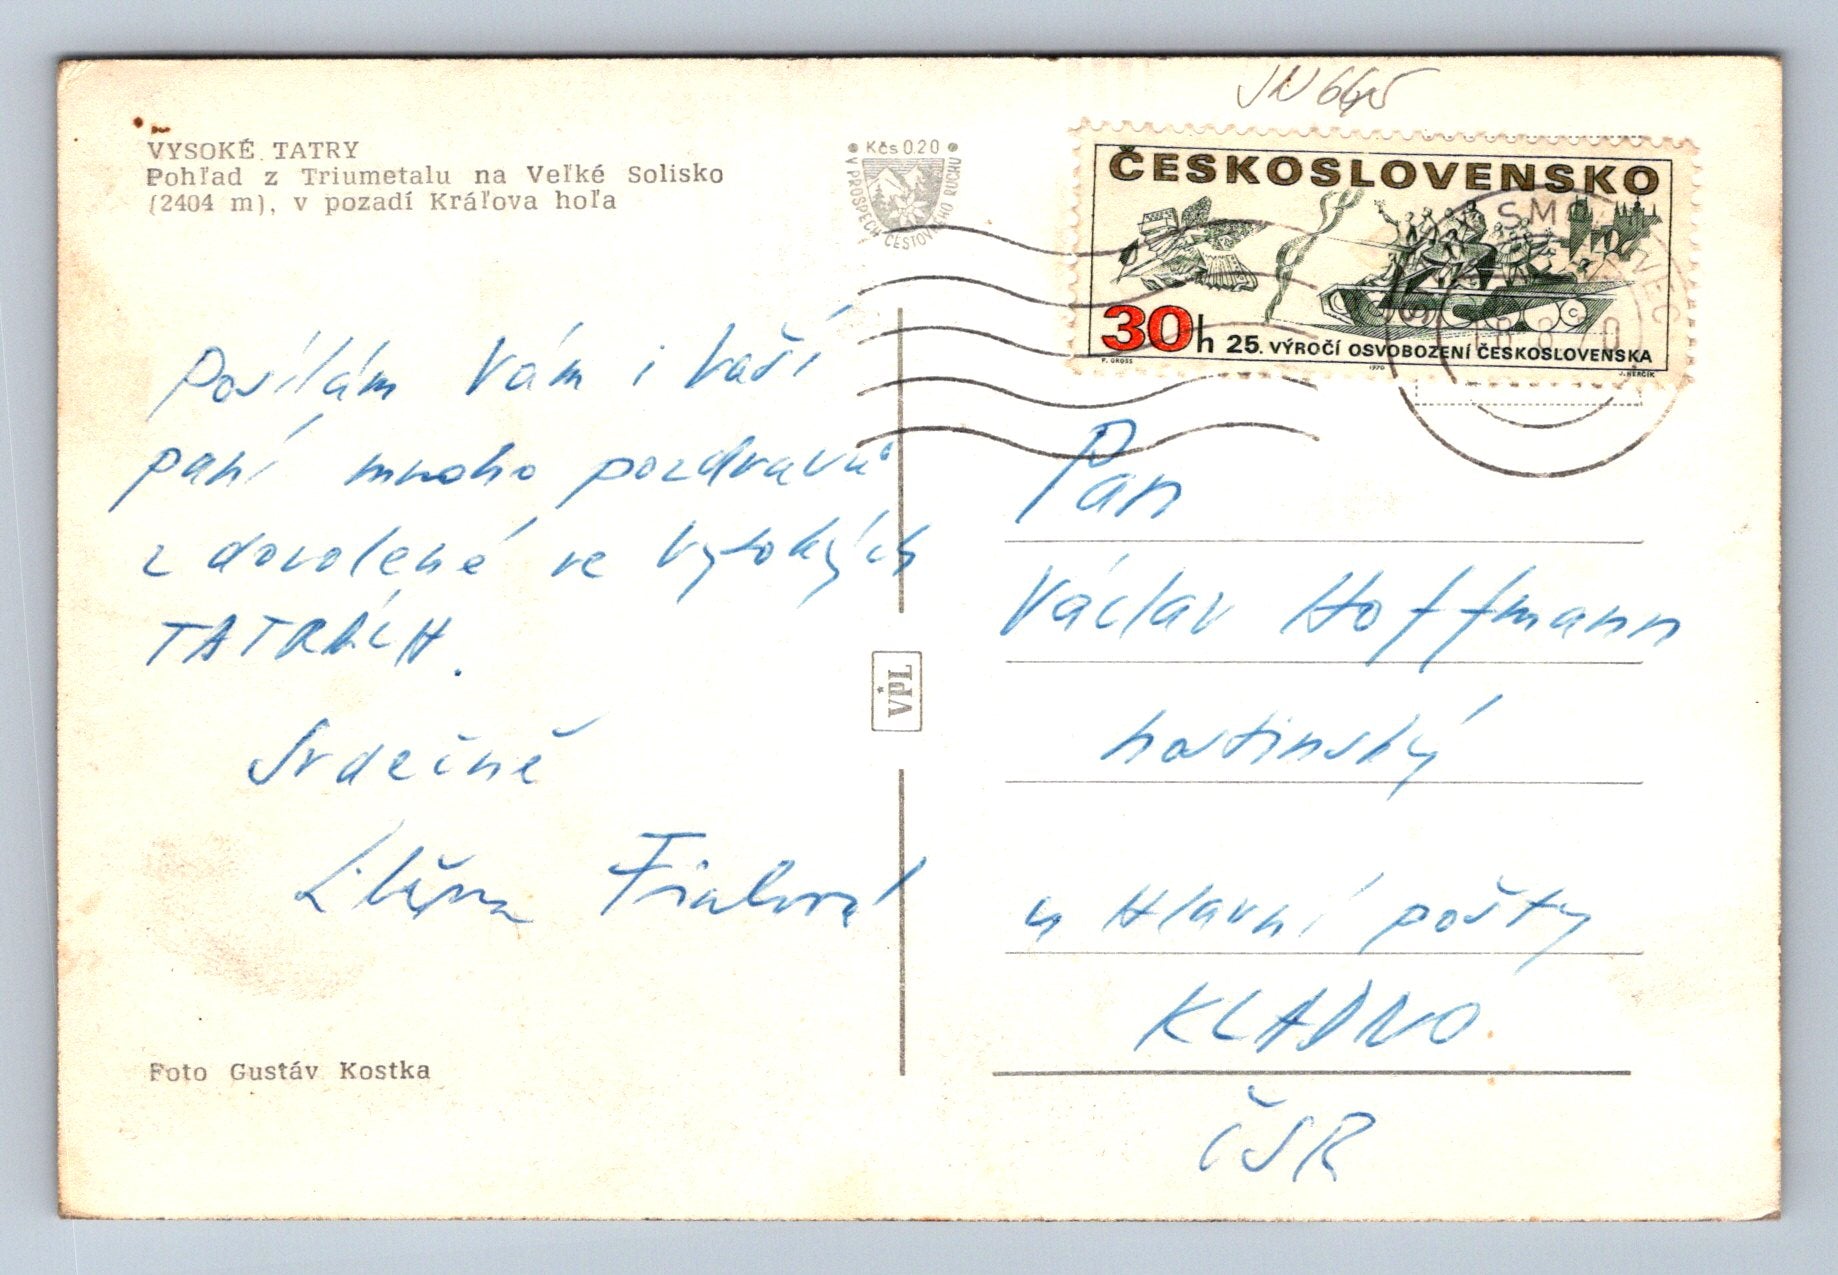 JN 665
VYSOKÉ TATRY
Pohľad z Triumetalu na Veľké Solisko
(2404 m), v pozadí Kráľova hoľa
Kčs 0.20
V PROSPECH CESTOVNÉHO RUCHU
ČESKOSLOVENSKO
30h 25. VÝROČÍ OSVOBOZENÍ ČESKOSLOVENSKA
P. GROSS 1970 J. HERČÍK
Posílám Vám i Vaší
paní mnoho pozdravů
z dovolené ve Vysokých
TATRÁCH.
Srdečně
Fialová
VPL
Pan
Václav Hoffmann
hostinský
u Hlavní pošty
KLADNO.
ČSR
Foto Gustáv Kostka